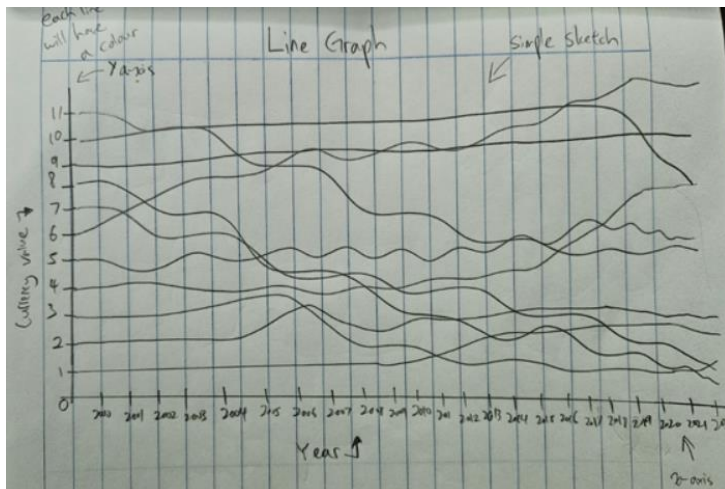 each line
will have
a colour
Line Graph
Simple Sketch
Y a-xis
11
10
9
8
7
6
5
4
3
2
1
0
Currency value
2000 2001 2002 2003 2004 2005 2006 2007 2008 2009 2010 2011 2012 2013 2014 2015 2016 2017 2018 2019 2020 2021
Year
x-axis